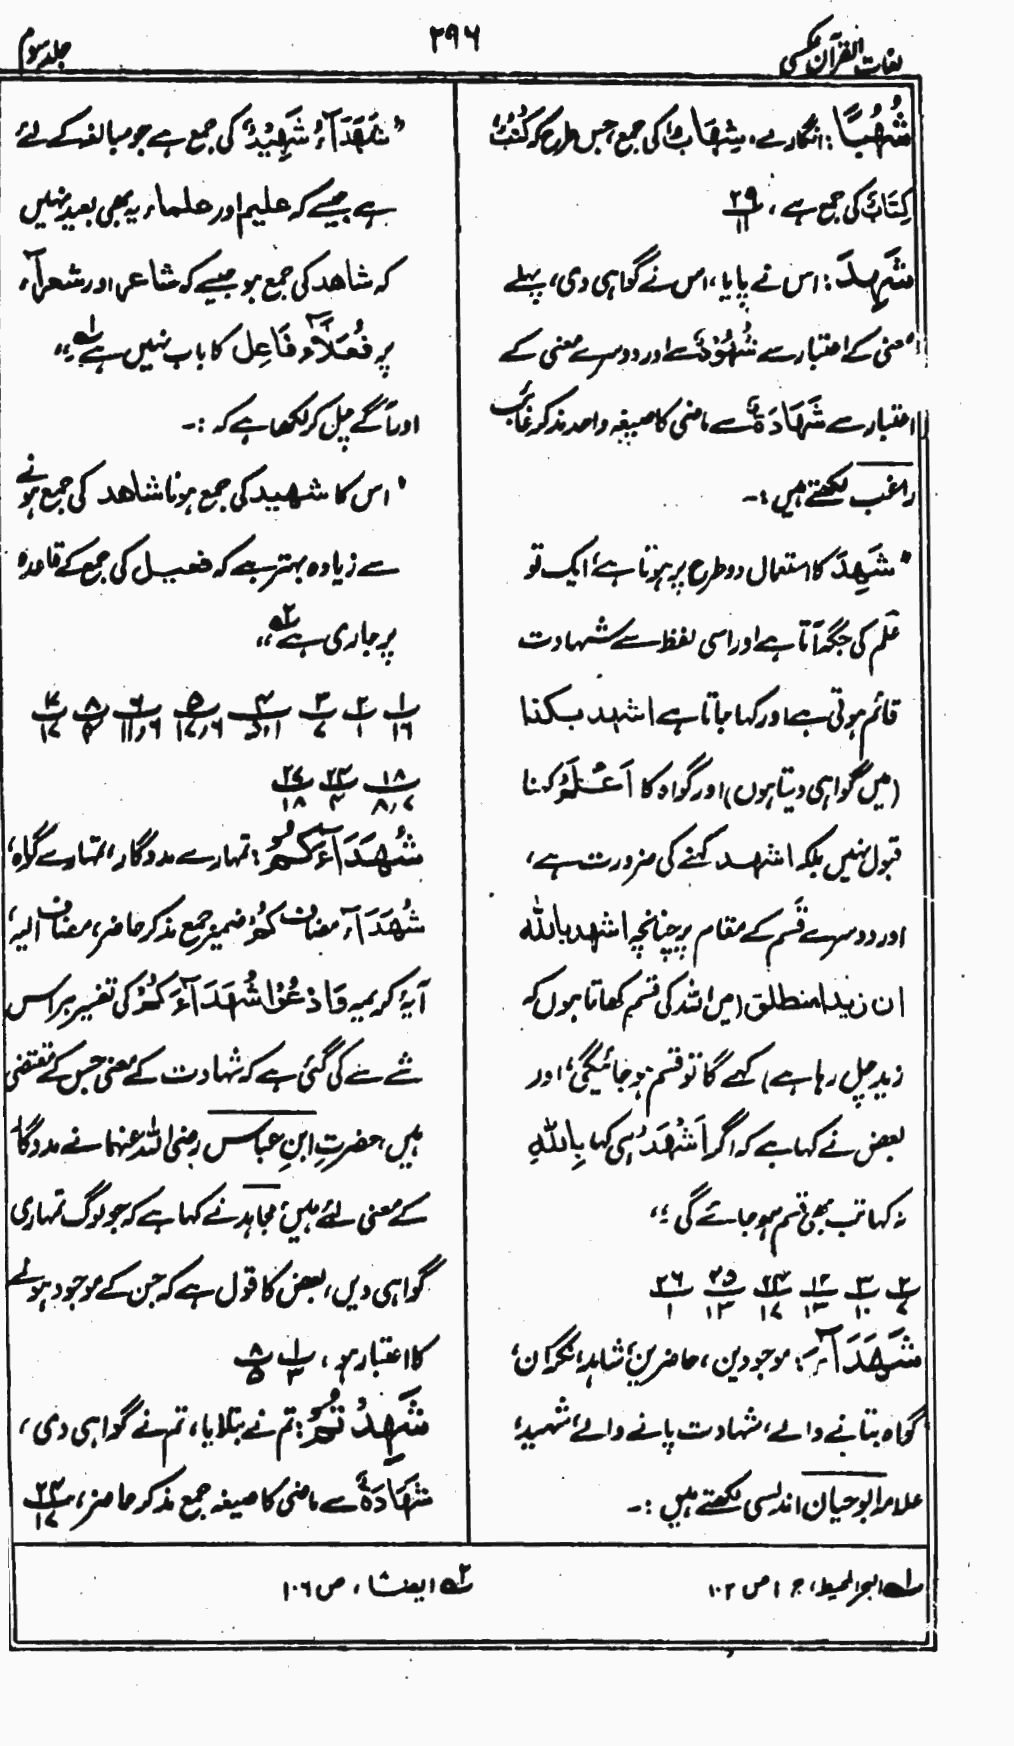 لغات القرآن عکسی
۲۹۶
جلد سوم
شُهُبًا: انگارے، شِهَابٌ کی جمع، جس طرح کہ كُتُبٌ
كِتَابٌ کی جمع ہے، ۲۹/۱۱
شَهِدَ: اس نے پایا، اس نے گواہی دی، پہلے
معنی کے اعتبار سے شُهُوْدٌ سے اور دوسرے معنی کے
اعتبار سے شَهَادَةٌ سے ماضی کا صیغہ واحد مذکر غائب
راغب لکھتے ہیں :۔
"شَهِدَ کا استعمال دو طرح پر ہوتا ہے، ایک تو
علم کی جگہ آتا ہے اور اسی لفظ سے شہادت
قائم ہوتی ہے اور کہا جاتا ہے اشهد بكذا
(میں گواہی دیتا ہوں) اور گواہ کا اَعْلَمُ کہنا
قبول نہیں بلکہ اشهد کہنے کی ضرورت ہے،
اور دوسرے قسم کے مقام پر چنانچہ اشهد باللہ
ان زيدا منطلق (میں اللہ کی قسم کھاتا ہوں کہ
زید چل رہا ہے) کہے گا تو قسم ہو جائیگی، اور
بعض نے کہا ہے کہ اگر اَشْهَدُ ہی کہا بِاللہِ
نہ کہا تب بھی قسم ہو جائے گی ؛"
۲/۷ ۳/۱۰ ۱۲/۱۳ ۲۴/۱۷ ۲۵/۱۳ ۲۶/۱
شُهَدَآءَ: موجودین، حاضرین، شاہد، نگران،
گواہ بتانے والے، شہادت پانے والے، شہید،
علامہ ابو حیان اندلسی لکھتے ہیں :۔
"شُهَدَآءُ شَهِيْدٌ کی جمع ہے جو مبالغہ کے لئے
ہے جیسے کہ علیم اور علماء، یہ بھی بعید نہیں
کہ شاهد کی جمع ہو جیسے کہ شاعر اور شعرآء
پر فُعَلَآء فَاعِل کا باب نہیں ہے ۱؎"
اور آگے چل کر لکھا ہے کہ :۔
"اس کا شهيد کی جمع ہونا شاهد کی جمع ہونے
سے زیادہ بہتر ہے کہ فعيل کی جمع کے قاعدہ
پر جاری ہے ۲؎"
۱/۱۶ ۲/۱ ۳/۷ ۴/۱،۵ ۵/۱۷،۶ ۶/۱۱،۶ ۸/۵ ۷/۱۷
۱۸/۸،۷ ۲۴/۳ ۲۷/۱۸
شُهَدَآءَكُمْ: تمہارے مددگار، تمہارے گواہ،
شُهَدَآءَ مضاف كُمْ ضمیر جمع مذکر حاضر، مضاف الیہ،
آیۂ کریمہ وَادْعُوْا شُهَدَآءَكُمْ کی تفسیر ہر اس
شے سے کی گئی ہے کہ شہادت کے معنی جس کے مقتضی
ہیں، حضرتِ ابنِ عباس رضی اللہ عنہما نے مددگا
کے معنی لئے ہیں، مجاہد نے کہا ہے کہ جو لوگ تمہاری
گواہی دیں، بعض کا قول ہے کہ جن کے موجود ہونے
کا اعتبار ہو، ۱/۳ ۸/۵
شَهِدْتُمْ: تم نے بتلایا، تم نے گواہی دی،
شَهَادَةٌ سے ماضی کا صیغہ جمع مذکر حاضر، ۲۴/۱۷
۱؎ البحر المحیط، ج ۱ ص ۱۰۲
۲؎ ایضًا، ص ۱۰۶